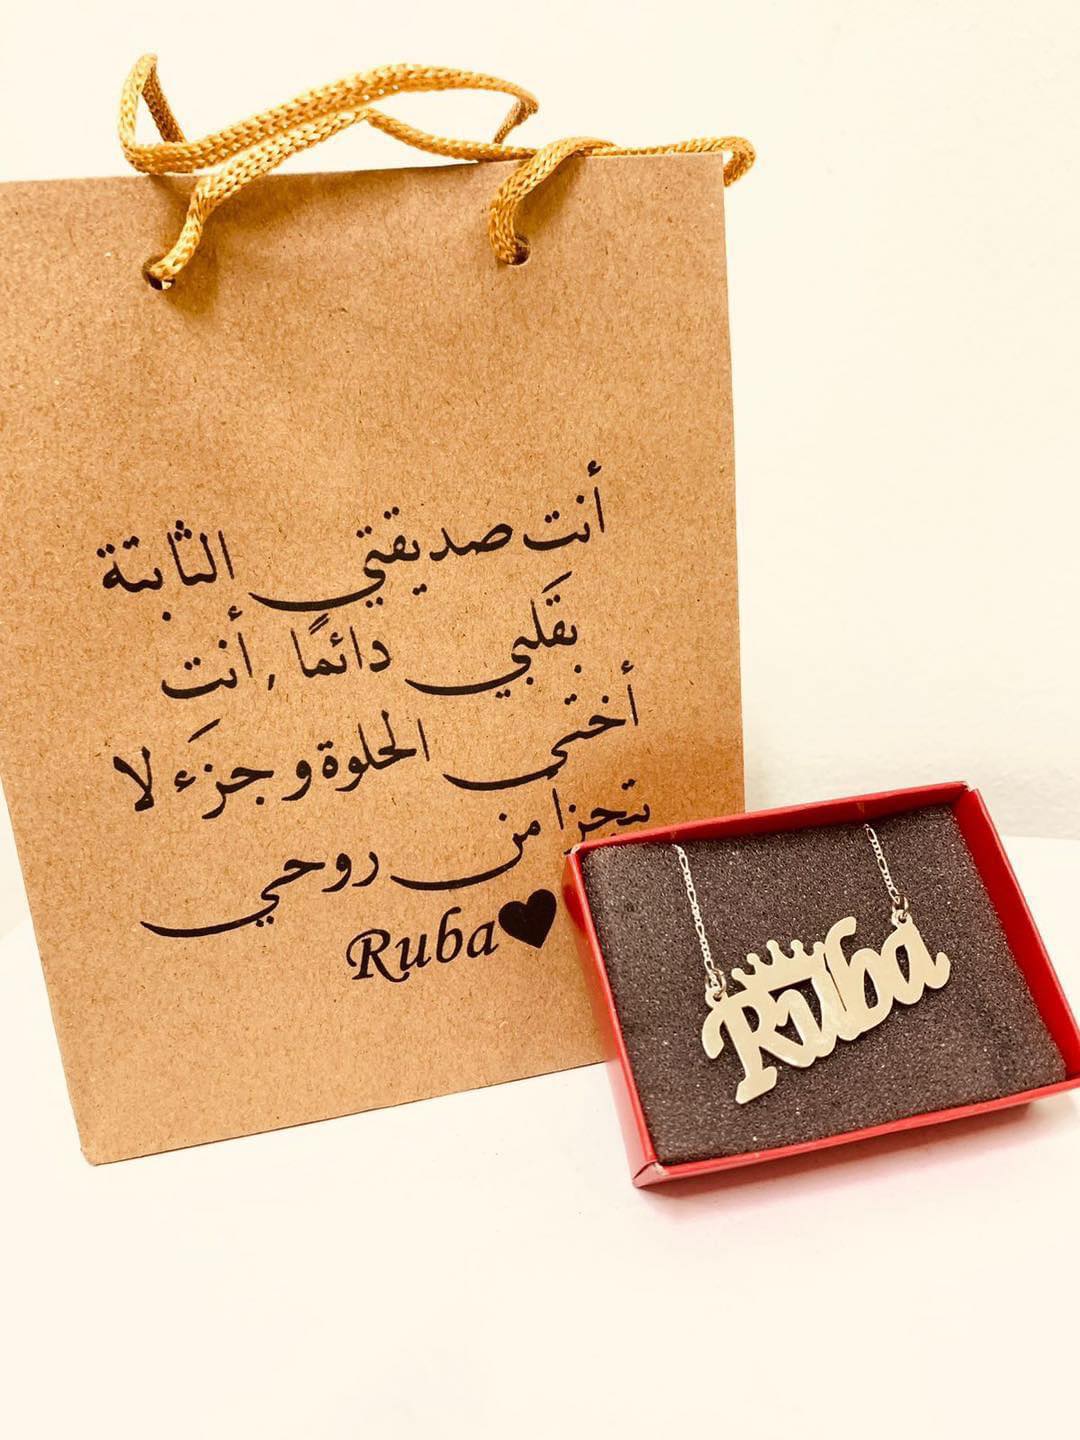 أنت صديقتي الثابتة
بقَلبي دائمًا , أنت
أختي الحلوة و جزَء لا
تتجزأ من روحي
Ruba♥
Ruba